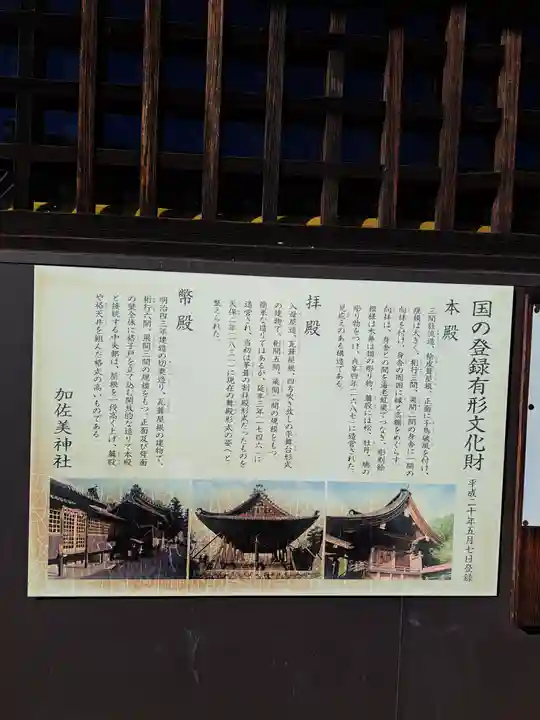 国の登録有形文化財
平成二十年五月七日登録
本殿
三間社流造、桧皮葺屋根、正面に千鳥破風を付け、
規模は大きく、桁行三間、梁間二間の身舎に一間の
向拝を付け、身舎の周囲に縁と高欄をめぐらす
向拝は、身舎との間を海老虹梁でつなぎ、彫刻絵
模様は木鼻は獏の彫り物、蟇股には松、牡丹、
彫り物をつけ、貞享四年(一六八七)に造営された、
見応えのある構造である。
拝殿
入母屋造、瓦葺屋根、四方吹き放しの平舞台形式
の建物で、桁間五間、梁間三間の規模をもつ
簡単な造りではあるが、延享三年(一七四六)に
造営され、当初は茅葺の割拝殿形式だったものを
天保二年(一八三一)に現在の舞殿形式の姿へと
整えられた。
幣殿
明治四三年建造の切妻造り、瓦葺屋根の建物で、
桁行六間、梁間三間の規模をもつ、正面及び背面
の壁全体に格子戸を立て込む開放的な造りで本殿
と接続する中央部は、屋根を一段高く上げ、蟇股
や格天井を組んだ格式の高いものである
加佐美神社